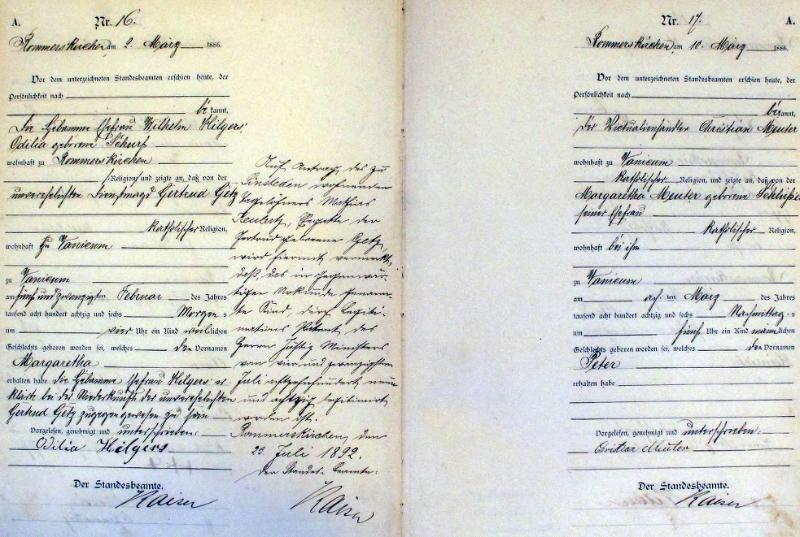 A.
Nr. 16.
Rommerskirchen am 2. März 1886.
Vor dem unterzeichneten Standesbeamten erschien heute, der
Persönlichkeit nach
bekannt,
Die Hebamme Ehefrau Wilhelm Hilgers
Odilia geborene Schurf
wohnhaft zu Rommerskirchen
Religion, und zeigte an, daß von der
unverehelichten Dienstmagd Gertrud Getz
katholischer Religion,
wohnhaft zu Vanicum
zu Vanicum
am fünf und zwanzigsten Februar des Jahres
tausend acht hundert achtzig und sechs Morgens
um vier Uhr ein Kind weiblichen
Geschlechts geboren worden sei, welches den Vornamen
Margaretha
erhalten habe Die Hebamme Ehefrau Hilgers er
klärte bei der Niederkunft der unverehelichten
Gertrud Getz zugegen gewesen zu sein
Vorgelesen, genehmigt und unterschrieben:
Odilia Hilgers
Der Standesbeamte.
Kaiser
Auf Antrag des zu
Sinsteden wohnenden
Tagelöhners Mathias
der
Gertrud geborene Getz,
wird hiermit vermerkt,
daß das in gegenwär
tiger Urkunde genann
te Kind, durch Legiti
mations des
Herrn Justiz Ministers
von vier und zwanzigsten
Juli achtzehnhundert neun
und achtzig legitimirt
worden ist.
Rommerskirchen, den
23. Juli 1892.
Der Standes-Beamte:
Kaiser
Nr. 17.
A.
Rommerskirchen, am 10. März 1886.
Vor dem unterzeichneten Standesbeamten erschien heute, der
Persönlichkeit nach
bekannt,
Der Victualienhändler Christian Meuter
wohnhaft zu Vanicum
katholischer Religion, und zeigte an, daß von der
Margaretha Meuter geborene
seiner Ehefrau
katholischer Religion,
wohnhaft bei ihm
zu Vanicum
am achten März des Jahres
tausend acht hundert achtzig und sechs Nachmittags
um fünf Uhr ein Kind männlichen
Geschlechts geboren worden sei, welches den Vornamen
Peter
erhalten habe
Vorgelesen, genehmigt und unterschrieben:
Cristian Meuter
Der Standesbeamte.
Kaiser